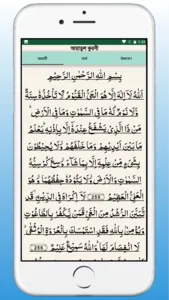 আয়াতুল কুরসী
অর্থ
بِسْمِ اللهِ الرَّحْمٰنِ الرَّحِيْمِ
اَللهُ لَآ اِلٰهَ اِلَّا هُوَ الْحَيُّ الْقَيُّوْمُ لَا تَأْخُذُهٗ سِنَةٌ
وَّلَا نَوْمٌ لَهٗ مَا فِى السَّمٰوٰتِ وَمَا فِى الْاَرْضِ
مَنْ ذَا الَّذِىْ يَشْفَعُ عِنْدَهٗٓ اِلَّا بِاِذْنِهٖ يَعْلَمُ
مَا بَيْنَ اَيْدِيْهِمْ وَمَا خَلْفَهُمْ وَلَا يُحِيْطُوْنَ
بِشَىْءٍ مِّنْ عِلْمِهٖٓ اِلَّا بِمَا شَآءَ وَسِعَ كُرْسِيُّهُ
السَّمٰوٰتِ وَالْاَرْضَ وَلَا يَـُٔوْدُهٗ حِفْظُهُمَا وَهُوَ
الْعَلِىُّ الْعَظِيْمُ 255 لَآ اِكْرَاهَ فِى الدِّيْنِ قَدْ
تَّبَيَّنَ الرُّشْدُ مِنَ الْغَىِّ فَمَنْ يَّكْفُرْ بِالطَّاغُوْتِ
وَيُؤْمِنْ بِاللهِ فَقَدِ اسْتَمْسَكَ بِالْعُرْوَةِ الْوُثْقٰى
لَا انْفِصَامَ لَهَا وَاللهُ سَمِيْعٌ عَلِيْمٌ 256